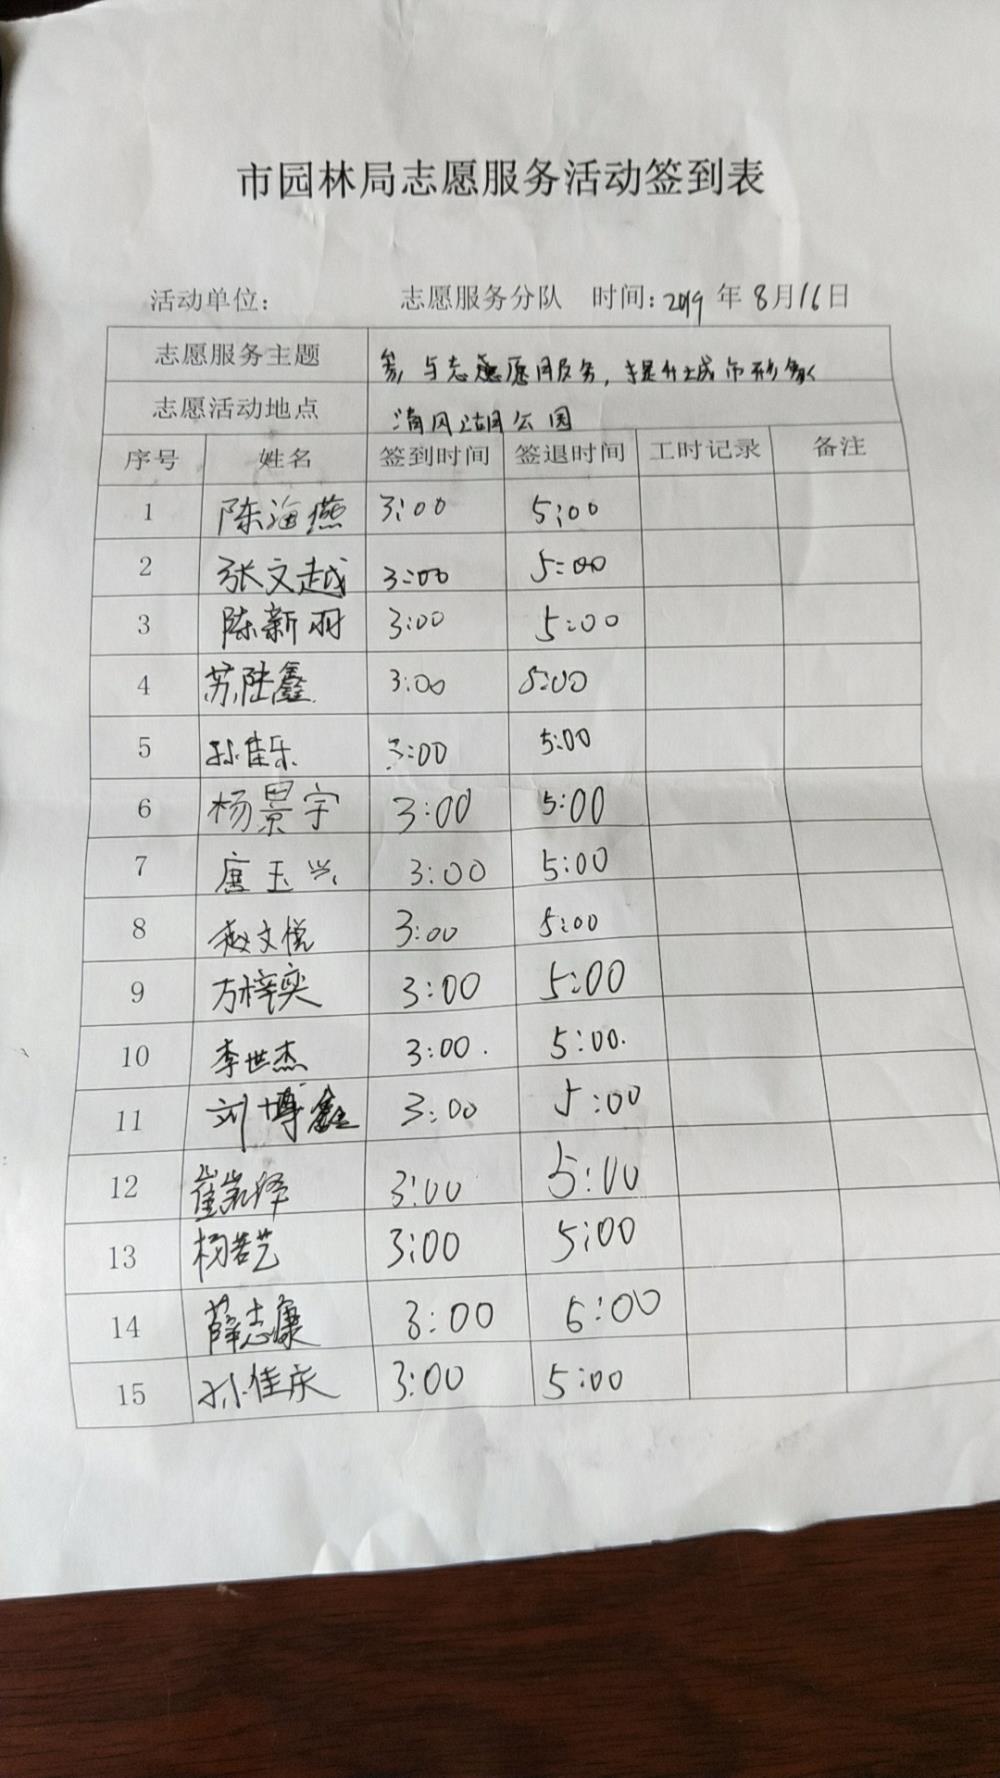 市园林局志愿服务活动签到表
活动单位: 志愿服务分队 时间: 2019 年 8月16日
志愿服务主题 参与志愿服务,提升城市形象
志愿活动地点 清风湖公园
序号 姓名 签到时间 签退时间 工时记录 备注
1 陈海燕 3:00 5:00
2 张文越 3:00 5:00
3 陈新羽 3:00 5:00
4 苏陆鑫 3:00 5:00
5 孙佳乐 3:00 5:00
6 杨景宇 3:00 5:00
7 唐玉兴 3:00 5:00
8 赵文悦 3:00 5:00
9 方梓奕 3:00 5:00
10 李世杰 3:00. 5:00.
11 刘博鑫 3:00 5:00
12 崔凯泽 3:00 5:00
13 杨若艺 3:00 5:00
14 薛志康 3:00 5:00
15 孙佳庆 3:00 5:00